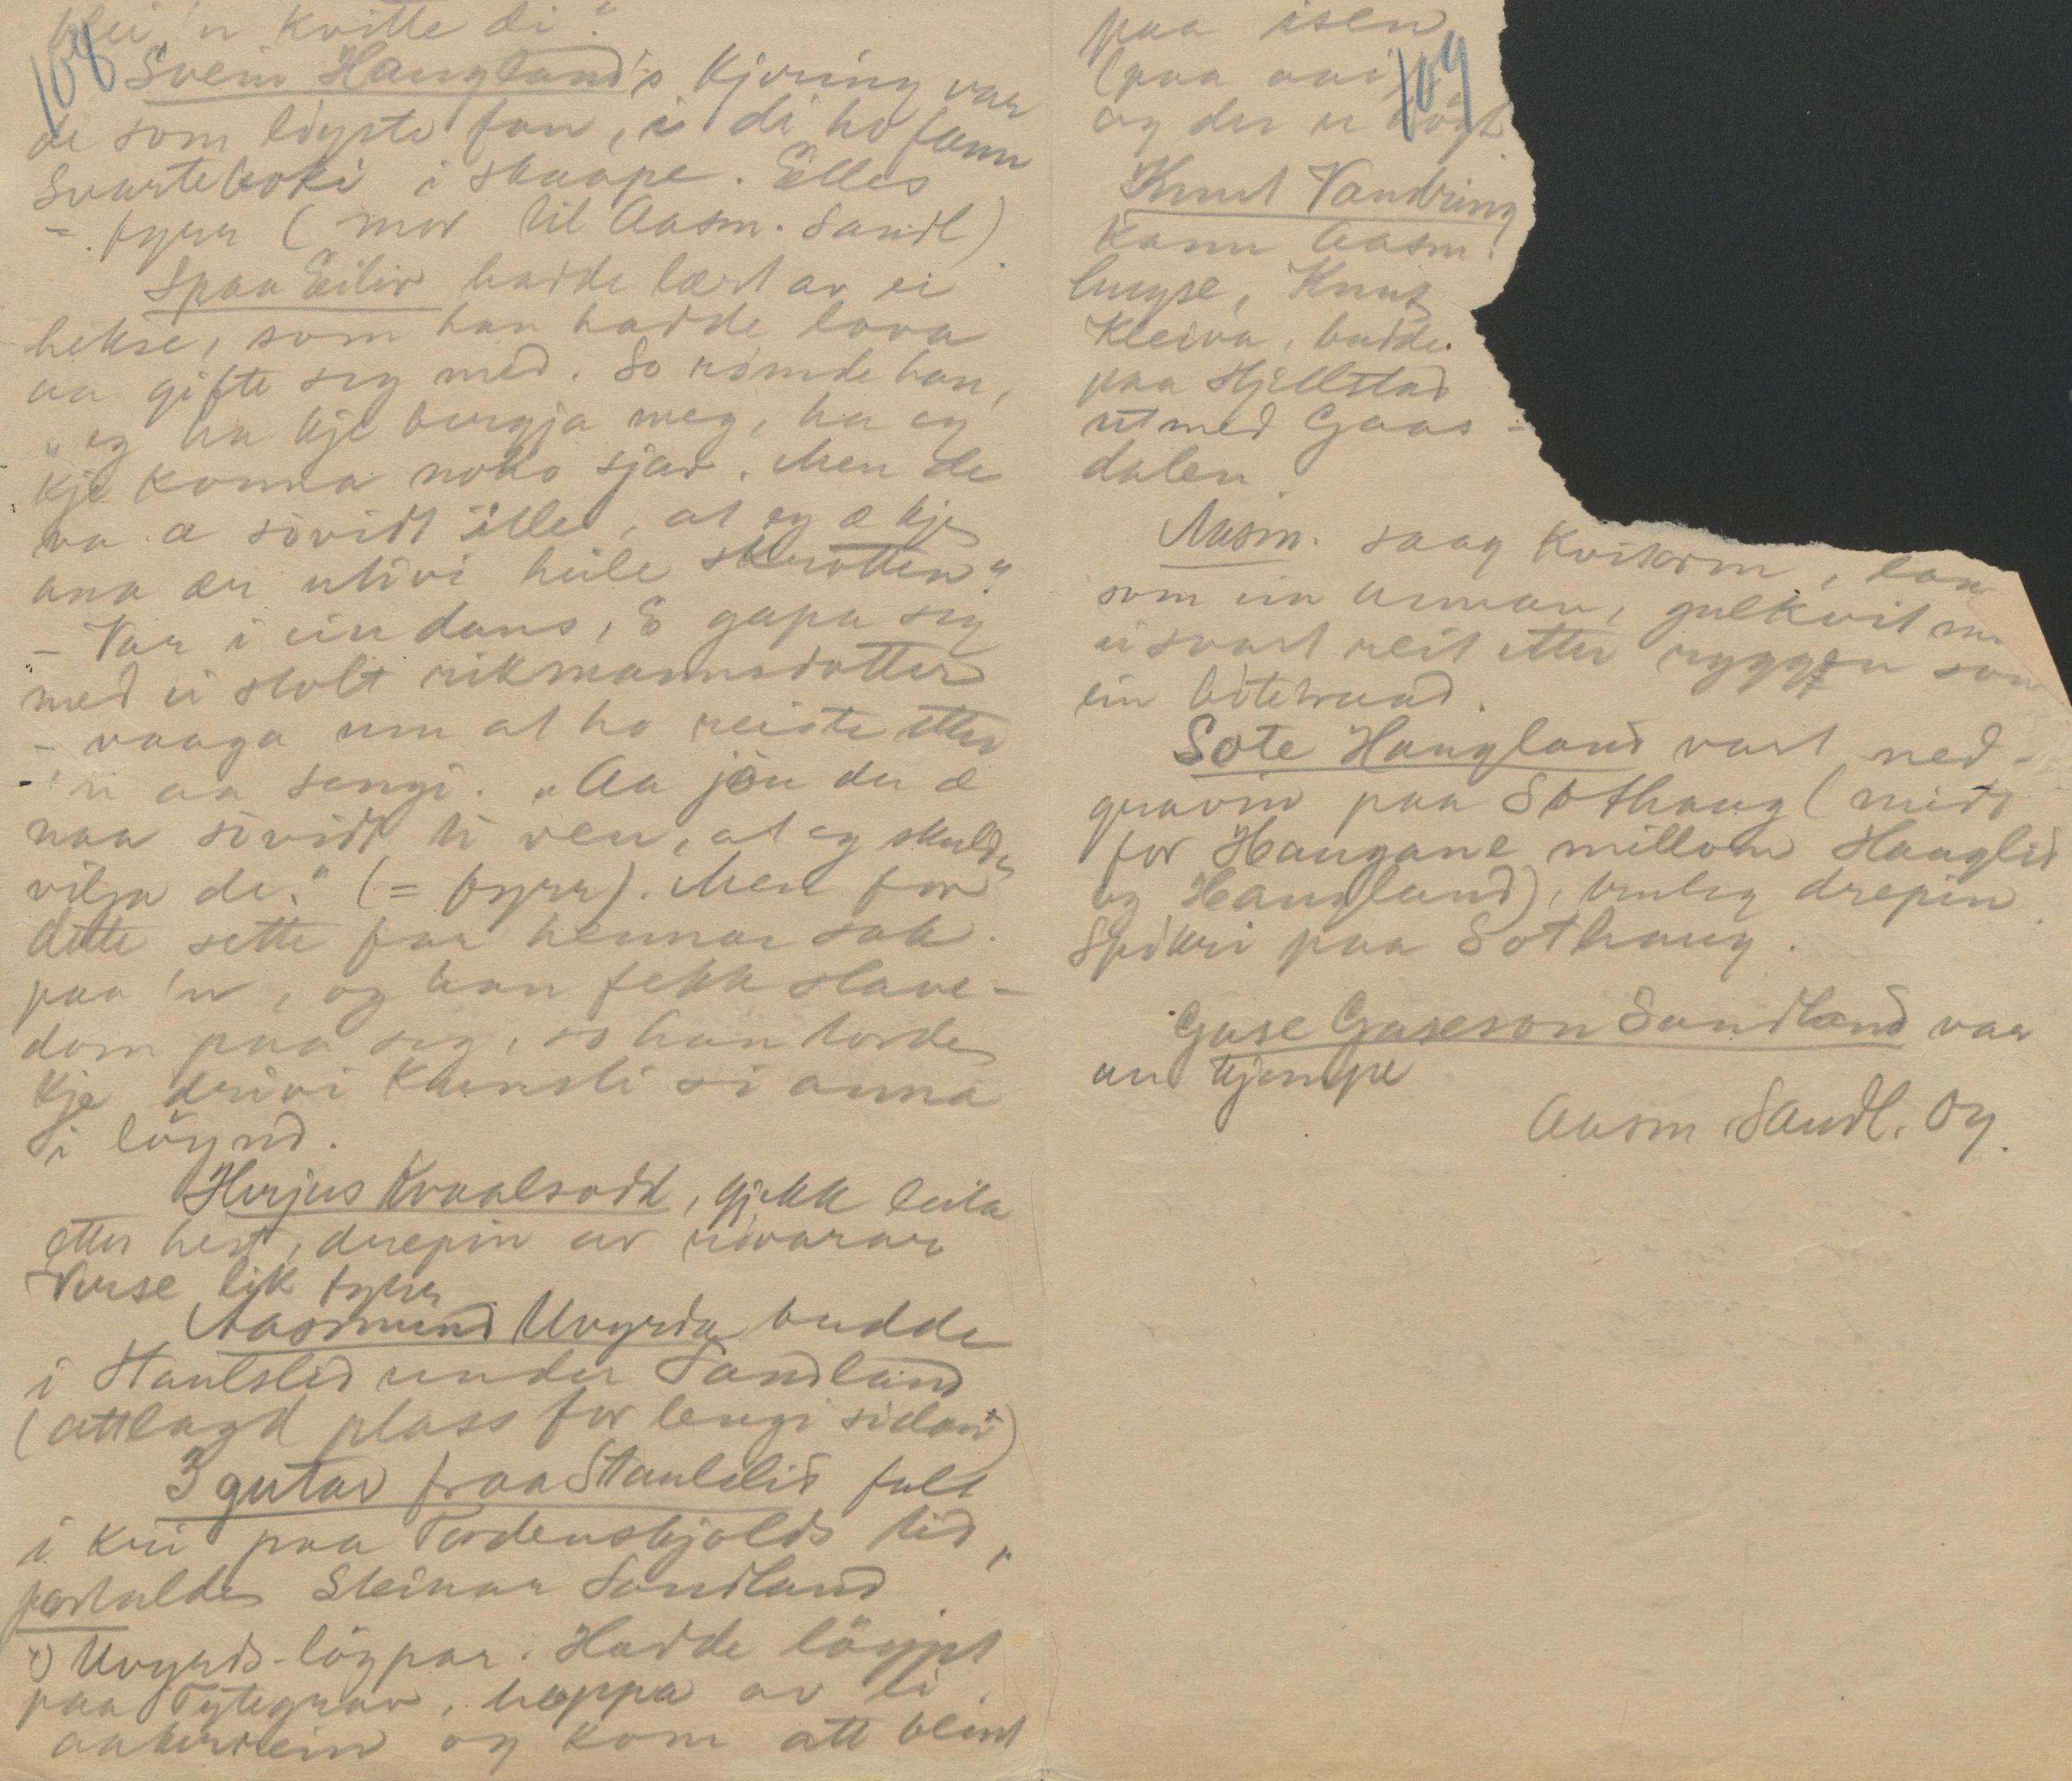 blei 'n kvitte di."
108
Svein Haugland's kjering var
de som löyste fan, i di ho fann
Svarteboki i skaape. Elles
= fyrr (mor til Aasm. Sandl)
Spaa Eiliv hadde lært av ei
hekse, som han hadde lova
aa gifte seg med. So römde han,
"eg ha kje bergja meg, ha eg
kje konna noko sjav. Men de
va a sövidt ille, at eg æ kje
ana ær utivi heile skrotten"
- Var i ein dans, & gapa seg
med ei stolt rikmannsdotter
- vaaga um at ho reiste etter
'n aa sengi. "Aa jöu du æ
naa sövidt ti ven, at eg skulde
vilja de." (= fyrr). Men for
dette sette far hennar sak
paa 'n, og han fekk slave-
dom paa seg, so han torde
kje drivi kunsti si anna
i löynd.
Herjus Kvaalsodd, gjekk leita
etter hest, drepin av rövarar
Verse lik fyrr
Aasmund Uvyrda budde
i Staulslid under Sandland
(attlagd plass for lengi sidan)
3 gutar fraa Staulslid fall
i krii paa Tordenskjolds tid,
fortalde Steinar Sandland
Uvyrds-löypar. Hadde löypt
paa Tytegrav, hoppa av ei
aakerrein og kom att beint
paa isen
(paa aai)
109
og der er högt
Knut Vandring
kann Aasm.
huyse, Knut
Kleiva, budde
paa Hjellstad
ut med Gaas-
dalen.
Aasm. saag kvitorm, lan
som ein armar, gulkvit m
ei svart reit etter ryggen som
ein beitebraad.
Sote Haugland vart ned-
gravin paa Sothaug (midt
for Haugane millom Hauglid
og Haugland), truleg drepin
Spikri paa Sothaug.
Guse Guseson Sandland var
en kjempe
Aasm Sandl. Oy.